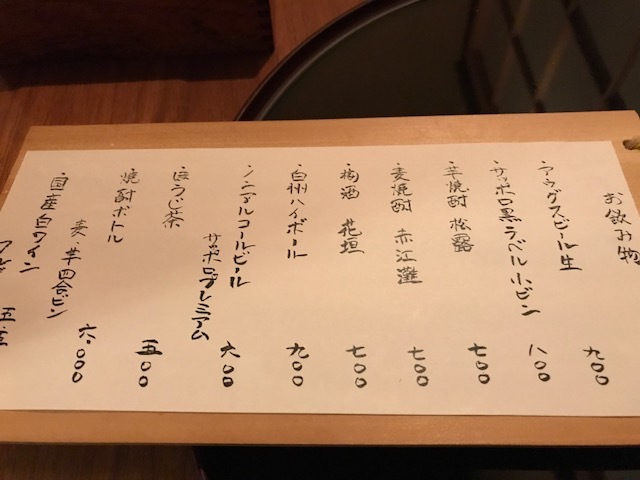 お飲み物
・アウグスビール生 九〇〇
・サッポロ黒ラベル小ビン 八〇〇
・芋焼酎 松露 七〇〇
・麦焼酎 赤江灘 七〇〇
・梅酒 花垣 七〇〇
・白州ハイボール 九〇〇
・ノンアルコールビール
サッポロプレミアム 六〇〇
・ほうじ茶 五〇〇
焼酎ボトル
麦・芋四合ビン 六、〇〇〇
・国産白ワイン